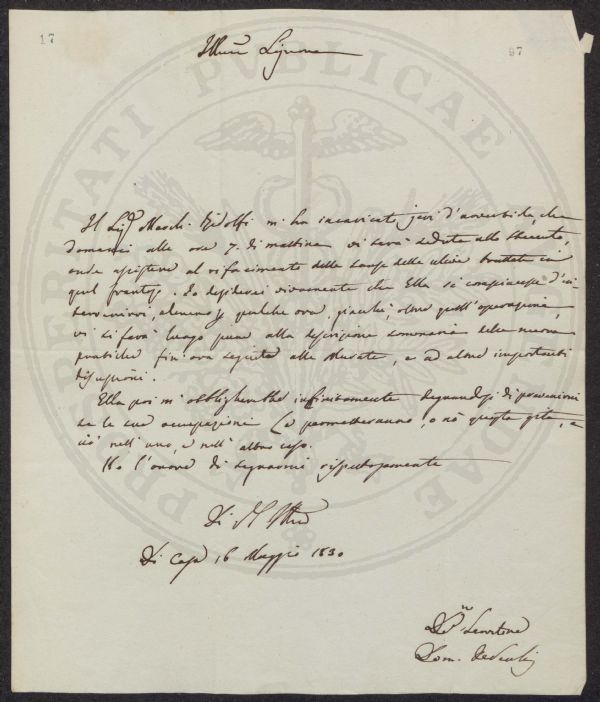 17
97
Illmo Signore
Il Sigr March. Ridolfi mi ha incaricato jeri d'avvertirla, che
domani alle ore 7. di mattina vi sarà seduta allo
onde assistere al rifacimento delle delle ulive
quel Io desidererei vivamente che Ella si compiacesse d'in
tervenirvi, almeno p qualche ora, giacchè, oltre quell'operazione,
vi si farà luogo pure alla descrizione sommaria delle nuove
pratiche fin'ora seguite alle e ad altre importanti
discussioni.
Ella poi m'obbligherebbe infinitamente degnandosi di prevenirmi
se le sue occupazioni Le permetteranno, o nò questa gita, e
ciò nell'uno, e nell'altro caso.
Ho l'onore di segnarmi rispettosamente
Di
Di Casa 16 Maggio 1830
Servitore
Dom.
PROSPERITATI PUBLICAE